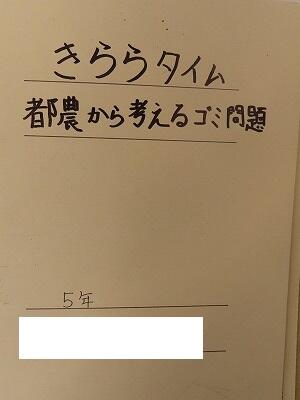 きららタイム
都農から考えるゴミ問題
5年